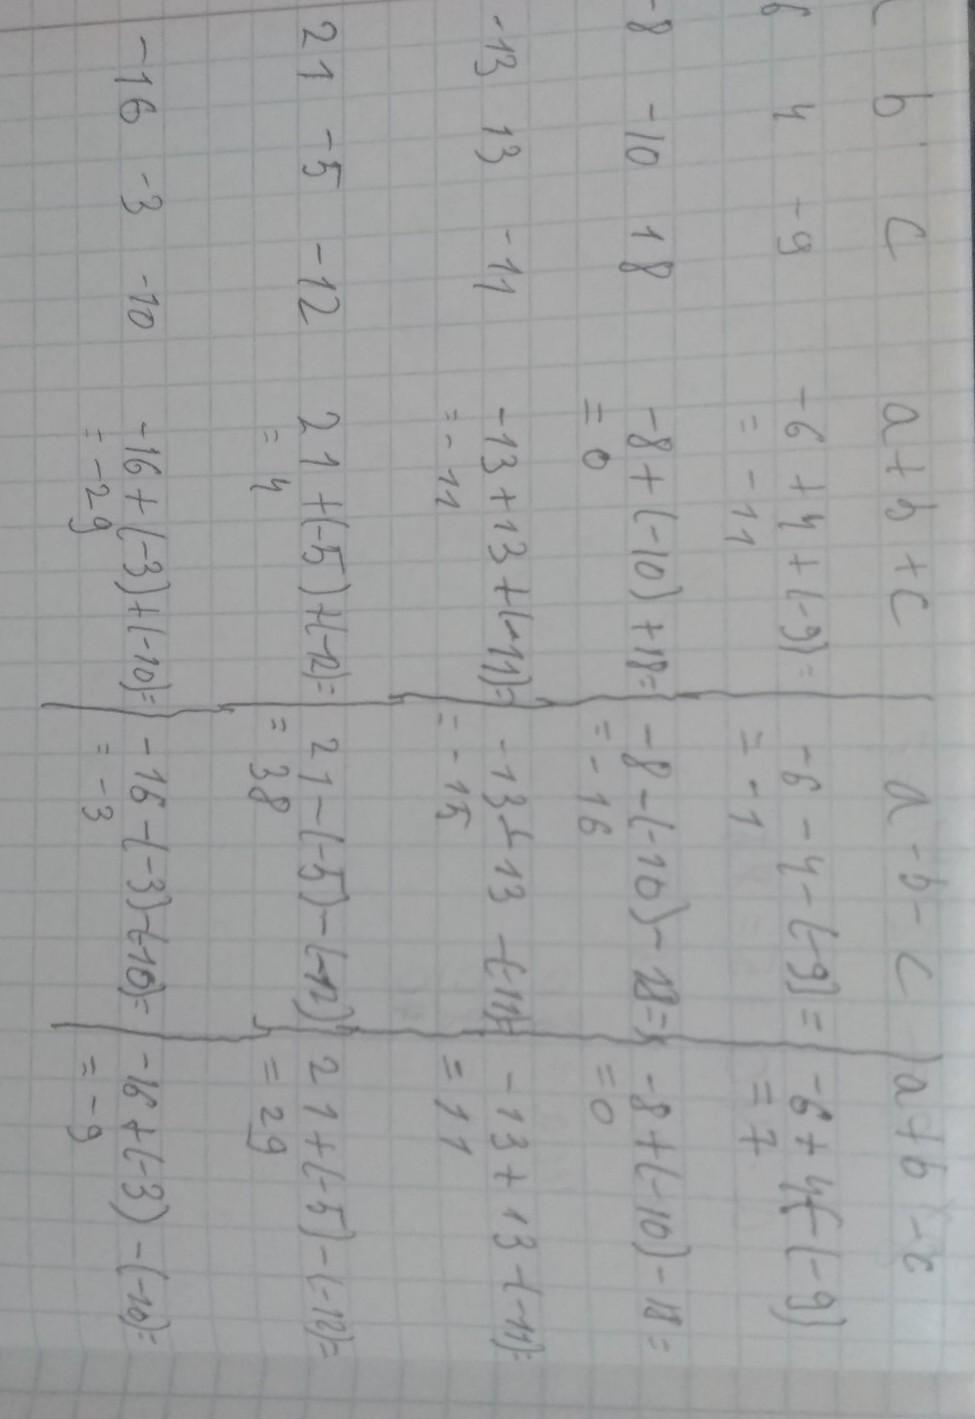 b c a+b+c a-b-c a+b-c
6 4 -9 -6+4+(-9)= -6-4-(-9)= -6+4-(-9)
=-11 =-1 =7
-8 -10 18 -8+(-10)+18= -8-(-10)-18= -8+(-10)-18=
=0 =-16 =0
-13 13 -11 -13+13+(-11)= -13-13-(-11)= -13+13-(-11)=
=-11 =-15 =11
21 -5 -12 21+(-5)+(-12)= 21-(-5)-(-12) 21+(-5)-(-12)=
=4 =38 =29
-16 -3 -10 -16+(-3)+(-10)= -16-(-3)-(-10)= -16+(-3)-(-10)=
=-29 =-3 =-9